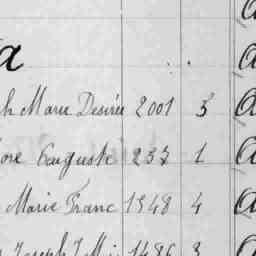 a
h Marie Desirée 2001 3 A
ore Auguste 237 1 A
Marie Franc 1348 4 A
Joseph 1486 3 A